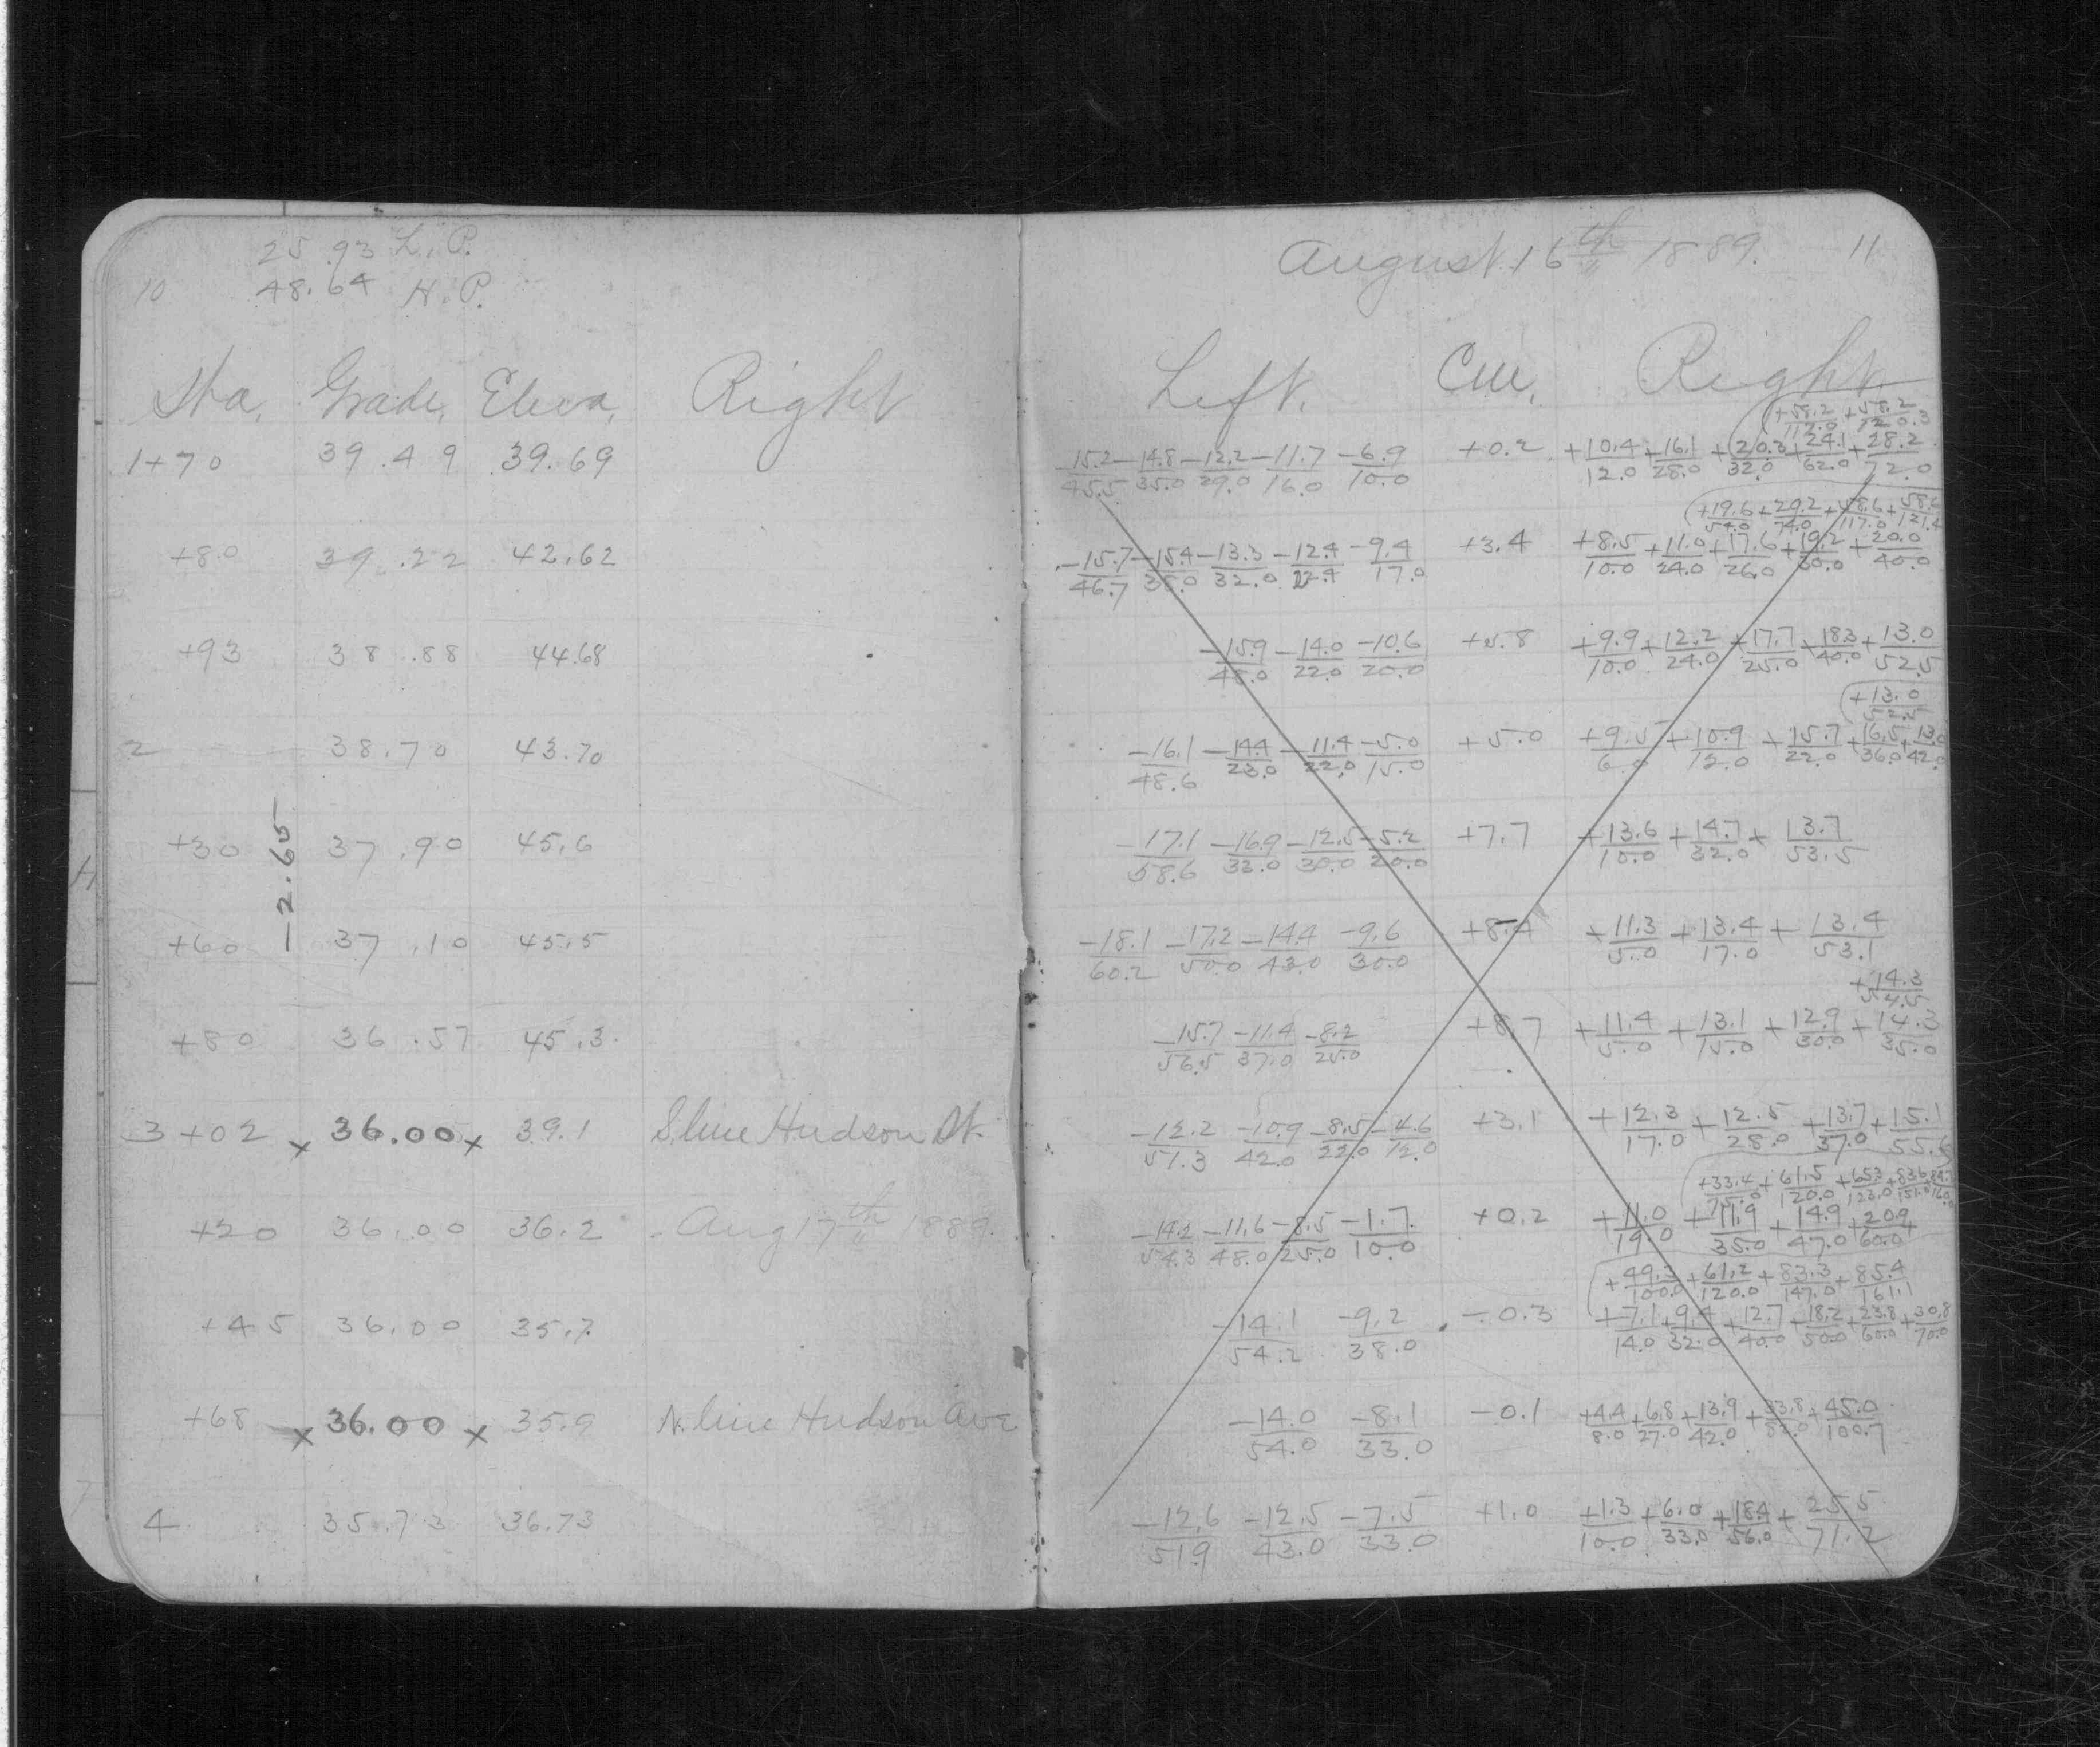 25.93 L.P.
10 48.64 H.P.
Sta. Grade, Eleva, Right
1+70 39.49 39.69
+80 39.22 42.62
+93 38.88 44.68
2 38.70 43.70
-2.65
+30 37.90 45.6
+60 37.10 45.5
+80 36.57 45.3
3+02 x 36.00 x 39.1 S. line Hudson St.
+20 36.00 36.2 - Aug 17th 1889.
+45 36.00 35.7
+68 x 36.00 x 35.9 N. line Hudson Ave
4 35.73 36.73
H
August 16th 1889. 11
Left. Cen. Right.
+58.2/112.0 +58.2/120.3
-15.2/45.5 -14.8/35.0 -12.2/29.0 -11.7/16.0 -6.9/10.0 +0.2 +10.4/12.0 +16.1/28.0 +20.3/32.0 +24.1/62.0 +28.2/72.0
+19.6/54.0 +20.2/74.0 +48.6/117.0
-15.7/46.7 -15.4/35.0 -13.3/32.0 -12.4/22.4 -9.4/17.0 +3.4 +8.5/10.0 +11.0/24.0 +17.6/26.0 +19.2/30.0 +20.0/40.0
-15.9/48.0 -14.0/22.0 -10.6/20.0 +5.8 +9.9/10.0 +12.2/24.0 +17.7/25.0 +18.3/40.0 +13.0/52.5
+13.0/52.5
-16.1/48.6 -14.4/23.0 -11.4/22.0 -5.0/15.0 +5.0 +9.5/6.0 +10.9/12.0 +15.7/22.0 +16.5/36.0 +13.0/42.0
-17.1/58.6 -16.9/33.0 -12.5/30.0 -5.2/20.0 +7.7 +13.6/10.0 +14.7/32.0 +13.7/53.5
-18.1/60.2 -17.2/50.0 -14.4/43.0 -9.6/30.0 +8.4 +11.3/5.0 +13.4/17.0 +13.4/53.1
+14.3/54.5
-15.7/56.5 -11.4/37.0 -8.2/25.0 +8.7 +11.4/5.0 +13.1/15.0 +12.9/30.0 +14.3/35.0
-12.2/51.3 -10.9/42.0 -8.5/22.0 -4.6/12.0 +3.1 +12.3/17.0 +12.5/28.0 +13.7/37.0 +15.1/55.6
+33.4/75.0 +61.5/120.0 +65.3/123.0 +83.6/151.0
-14.2/54.3 -11.6/48.0 -8.5/25.0 -1.7/10.0 +0.2 +11.0/19.0 +11.9/35.0 +14.9/47.0 +20.9/60.0
+49.3/100.0 +61.2/120.0 +83.3/147.0 +85.4/161.1
-14.1/54.2 -9.2/38.0 -0.3 +7.1/14.0 +9.4/32.0 +12.7/40.0 +18.2/50.0 +23.8/60.0 +30.8/70.0
-14.0/54.0 -8.1/33.0 -0.1 +4.4/8.0 +6.8/27.0 +13.9/42.0 +33.8/82.0 +45.0/100.7
-12.6/51.9 -12.5/43.0 -7.5/33.0 +1.0 +1.3/10.0 +6.0/33.0 +18.4/56.0 +25.5/71.2